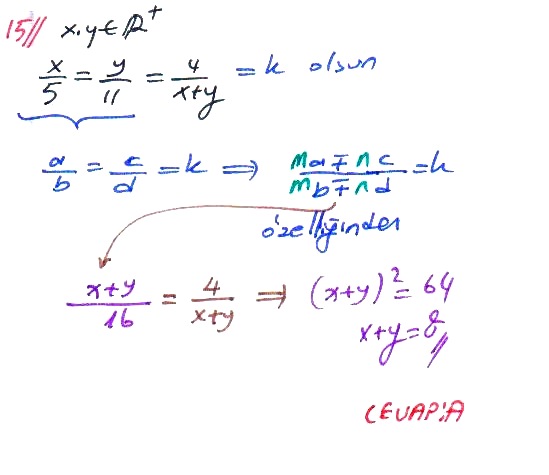 15// x,y∈R⁺
x/5 = y/11 = 4/(x+y) = k olsun
a/b = c/d = k ⇒ (ma∓nc)/(mb∓nd) = k
özelliğinden
(x+y)/16 = 4/(x+y) ⇒ (x+y)² = 64
x+y=8//
CEVAP:A